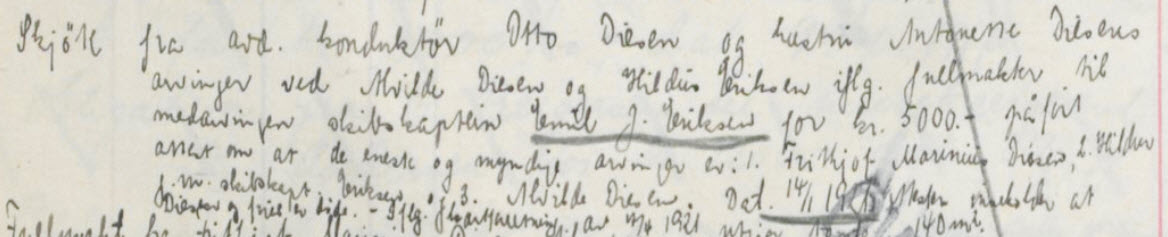 Skjøte fra avd. konduktör Otto Diesen og hustru Antonette Diesens
arvinger ved Alvilde Diesen og Hildur Eriksen iflg. fullmakter til
medarvingen skibskaptein Emil J. Eriksen for kr. 5000.- påført
attest om at de eneste og myndige arvinger er: 1. Fritkjof Marinius Diesen, 2. Hildur
g. m. skibskapt. Eriksen og 3. Alvilde Diesen. Dat. 14/1 Skjøtet inneholder at
Diesen og frue er døde. - Iflg. av 1921 utgjør 140 m².
Fullmakt fra